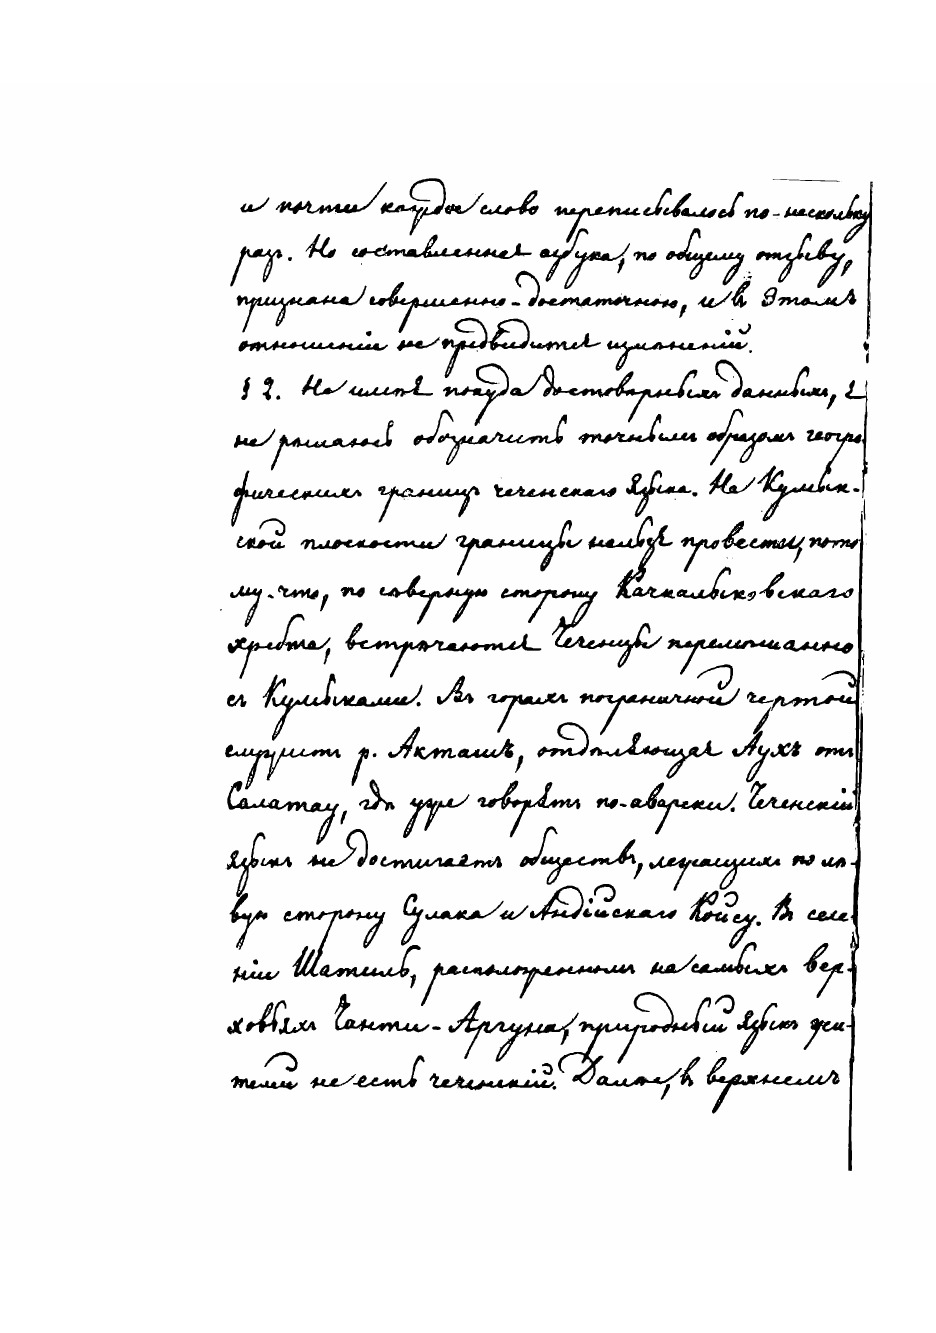 и почти каждое слово переписывалось по-нескольку
разъ. Но составленная азбука, по общему отзыву,
признана совершенно-достаточною, и въ этомъ
отношеніи не предвидится измѣненій.
§ 2. Не имѣя покуда достовѣрныхъ данныхъ, я
не рѣшаюсь обозначить точнымъ образомъ геогра
фическихъ границъ чеченскаго языка. На Кумык-
ской плоскости границы нельзя провести, пото
му-что, по сѣверную сторону Качкалыковскаго
хребта, встрѣчаются Чеченцы перемѣшанно
съ Кумыками. Въ горахъ пограничной чертой
служитъ р. Акташъ, отдѣляющая Аухъ отъ
Салатау, гдѣ уже говорятъ по-аварски. Чеченскій
языкъ не достигаетъ обществъ, лежащихъ по лѣ-
вую сторону Сулака и Андійскаго Койсу. Въ селе-
ніи Шатиль, расположенномъ на самыхъ вер-
ховьяхъ Чанти-Аргуна, природный языкъ жи-
телей не есть чеченскій. Далѣе, въ верхнемъ